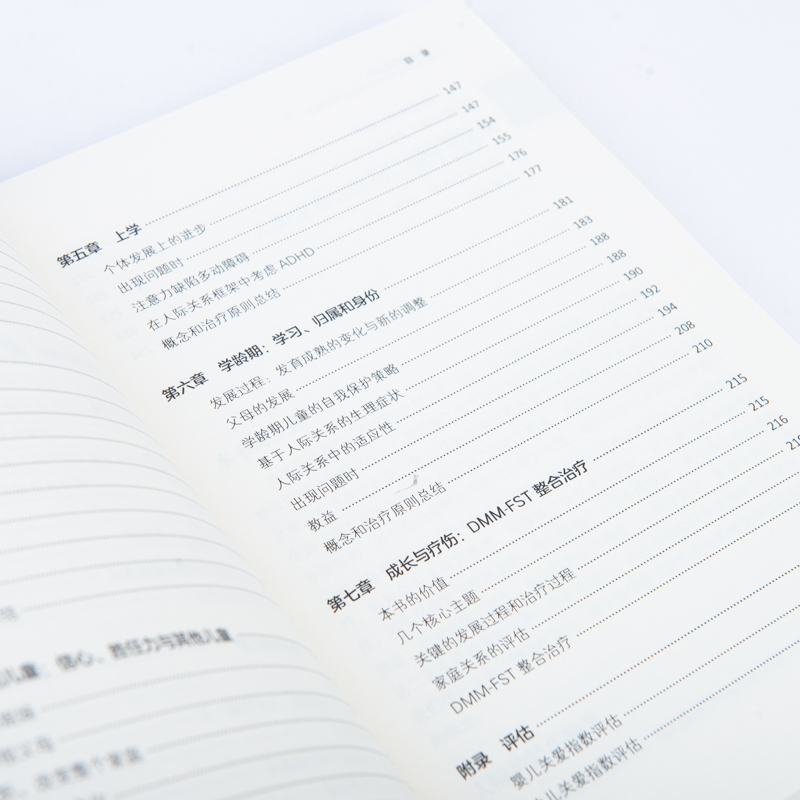 儿童：信心、胜任力与其他儿童
目 录
第五章 上学 147
个体发展上的进步 147
出现问题时 154
注意力缺陷多动障碍 155
在人际关系框架中考虑 ADHD 176
概念和治疗原则总结 177
第六章 学龄期：学习、归属和身份 181
发展过程：发育成熟的变化与新的调整 183
父母的发展 188
学龄期儿童的自我保护策略 188
基于人际关系的生理症状 190
人际关系中的适应性 192
出现问题时 194
教益 208
概念和治疗原则总结 210
第七章 成长与疗伤：DMM-FST 整合治疗 215
本书的价值 215
几个核心主题 216
关键的发展过程和治疗过程
家庭关系的评估
DMM-FST 整合治疗
附录 评估
婴儿关爱指数评估
关爱指数评估